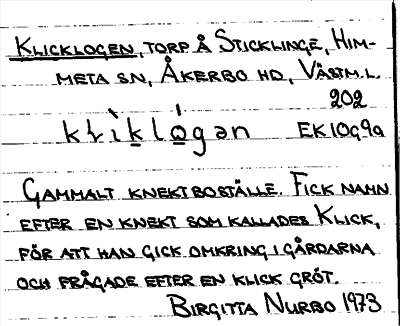 KLICKLOGEN, TORP Å STICKLINGE, HIM-
META SN, ÅKERBO HD, VÄSTM.L.
202
EK10G9a
GAMMALT KNEKTBOSTÄLLE. FICK NAMN
EFTER EN KNEKT SOM KALLADES KLICK,
FÖR ATT HAN GICK OMKRING I GÅRDARNA
OCH FRÅGADE EFTER EN KLICK GRÖT.
BIRGITTA NURBO 1973